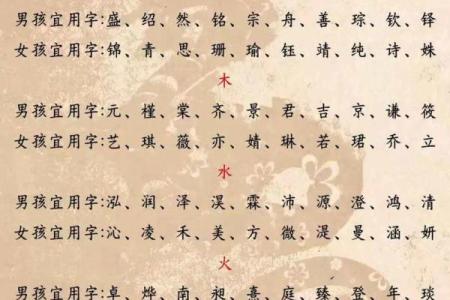 男孩宜用字:盛、绍、然、铭、宗、舟、善、琮、钦、铎
女孩宜用字:锦、青、思、珊、瑜、钰、靖、纯、诗、姝
木
男孩宜用字:元、槿、棠、齐、景、君、吉、京、谦、筱
女孩宜用字:艺、琪、薇、亦、婧、琳、若、珺、乔、立
水
男孩宜用字:泓、润、泽、淏、霖、沛、源、澄、鸿、清
女孩宜用字:沁、凌、禾、美、方、微、湜、曼、涵、妍
火
男孩宜用字:卓、烨、南、昶、熹、庭、臻、登、年、琰